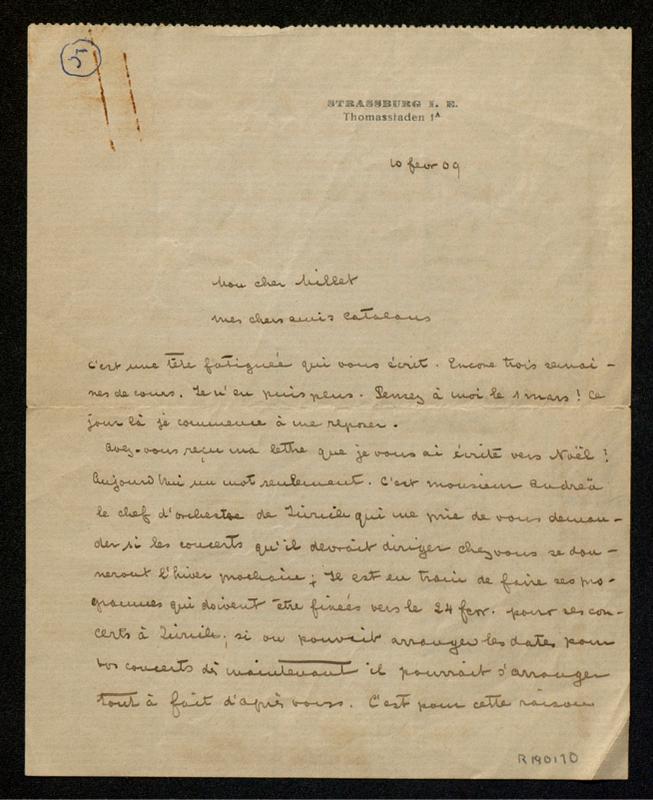 5
STRASSBURG I. E.
Thomasstaden 1A
10 fevr 09
Mon cher Millet
mes chers amis catalans
C'est une tête fatiguée qui vous écrit. Encore trois semai-
nes de cours. Je n'en puis plus. Pensez à moi le 1 mars! Ce
jour là je commence à me reposer.
Avez-vous reçu ma lettre que je vous ai écrite vers Noël?
Aujourd'hui un mot seulement. C'est monsieur Andreä
le chef d'orchestre de Zürich qui me prie de vous deman-
der si les concerts qu'il devrait diriger chez vous se don-
neront l'hiver prochain; Il est en train de faire ses pro-
grammes qui doivent être fixées vers le 24 fevr. pour ses con-
certs à Zürich; si on pouvait arranger les dates pour
vos concerts dès maintenant il pourrait s'arranger
tout à fait d'après vous. C'est pour cette raison
R190170